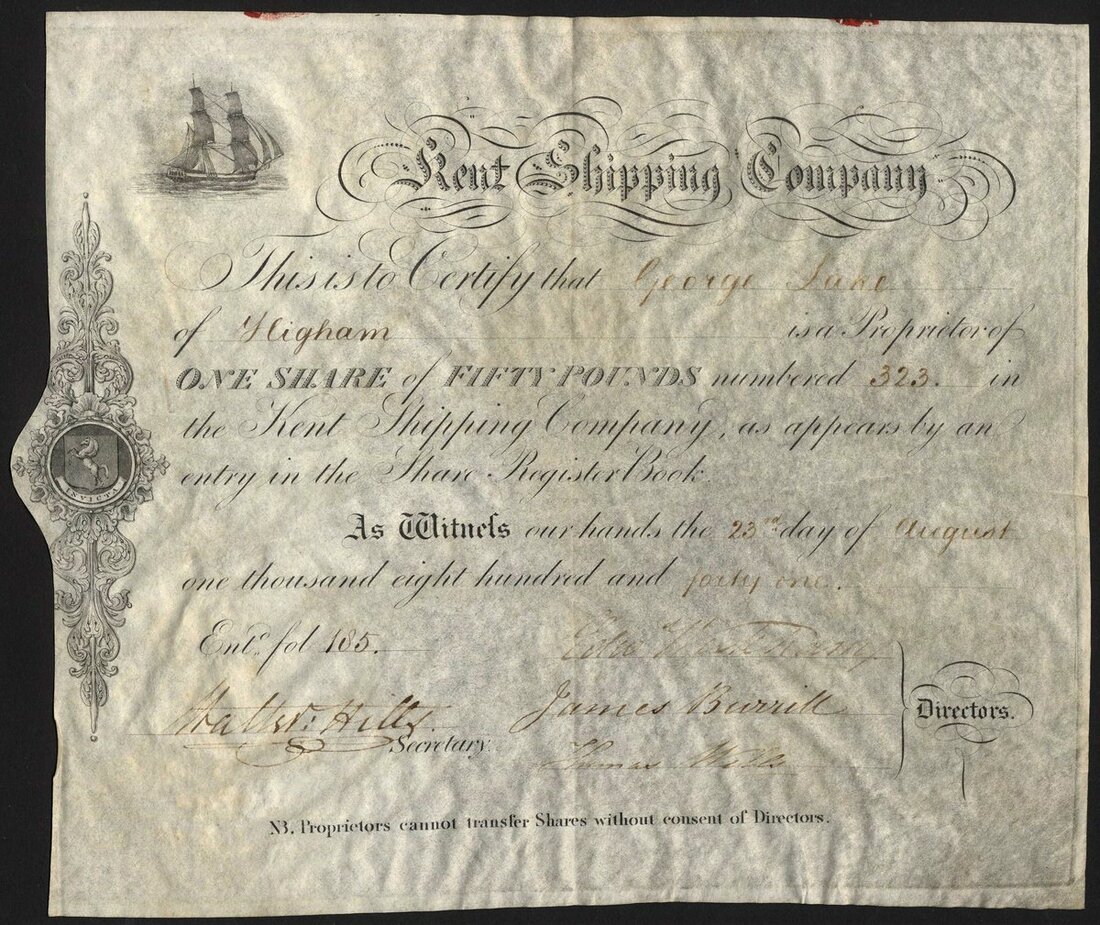 Kent Shipping Company
This is to Certify that George Lake
of Higham is a Proprietor of
ONE SHARE of FIFTY POUNDS numbered 323. in
the Kent Shipping Company, as appears by an
entry in the Share Register Book
INVICTA
As Witneſs our hands the 23rd day of August
one thousand eight hundred and forty one.
Entd. fol 185.
James Burrill
Directors.
Walter Hills
Secretary.
Thomas Wills
NB. Proprietors cannot transfer Shares without consent of Directors.